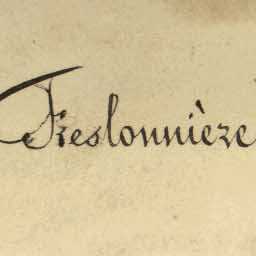 Freslonnière